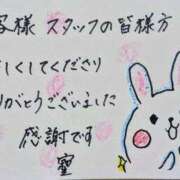 客様 スタッフの皆様方
しくしてくださり
りがとうございました
感謝です
聖